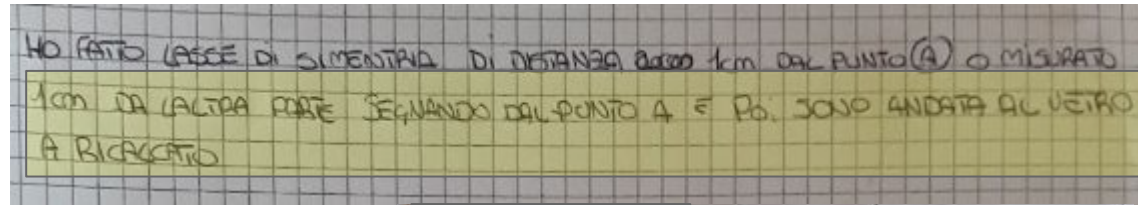 HO FATTO LASSE DI SIMENTRIA DI DISTANZA 1cm DAL PUNTO (A) O MISURATO
1cm DA LALTRA PARTE SEGNANDO DAL PUNTO A E POI SONO ANDATA AL VETRO
A RICALCATO